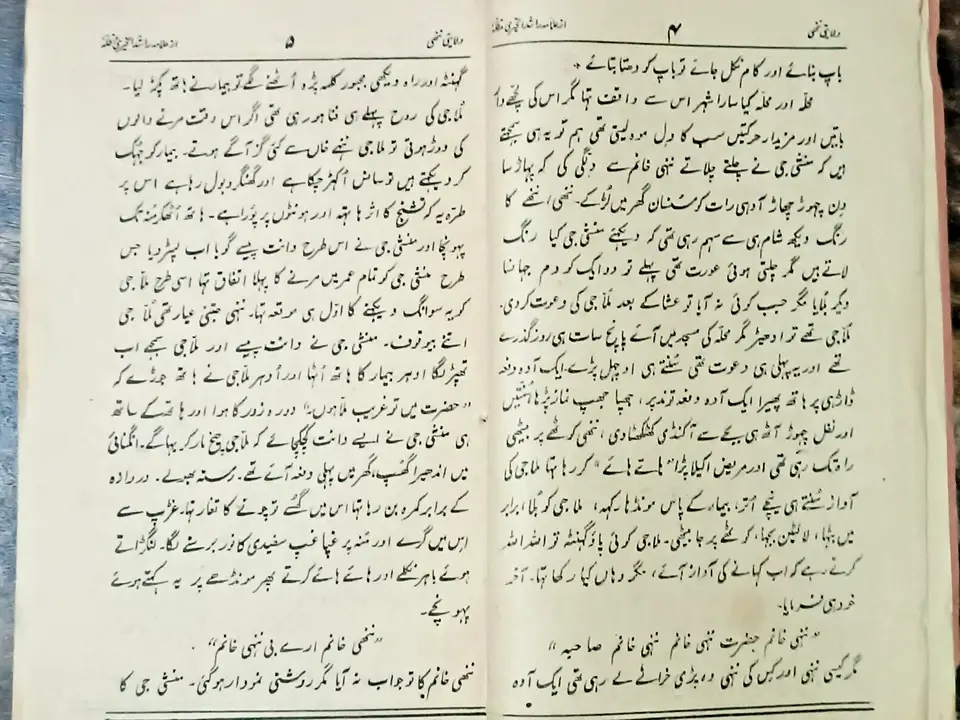 ولایتی ننھی
۴
از علامہ راشد الخیری مدظلہ
باپ بنائے اور کام نکل جائے تو باپ کو دھتا بتائے ۔
محلہ اور محلہ کیا سارا شہر اس سے واقف تہا مگر اس کی لچھے دار
باتیں اور مزیدار حرکتیں سب کا دل موہ لیتی تھی ہم تو یہ ہی سمجھتے
ہیں کہ منشی جی نے چلتے چلاتے ننھی خانم سے دِلگی کی کہ پہاڑ سا
دِن چہوڑ چھاڑ آدہی رات کو سُنسان گھر میں لڑکے۔ ننھی انکھے کا
رنگ دیکھ شام ہی سے سہم رہی تھی کہ دیکہئے منشی جی کیا رنگ
لاتے ہیں مگر چلتی ہوئی عورت تھی پہلے تو دو ایک کو دم جہانسا
دیکر بلایا مگر جب کوئی نہ آیا تو عشا کے بعد ملّا جی کی دعوت کر دی۔
ملّا جی تھے تو ادھیڑ مگر محلہ کی مسجد میں آئے پانچ سات ہی روز گذرے
تھے اور یہ پہلی ہی دعوت تھی سُنتے ہی اوچہل پڑے۔ ایک آدہ دفعہ
ڈاڑہی پر ہاتھ پھیرا ایک آدہ دفعہ توند پر، جھپا جھپ نماز پڑہا سُنتیں
اور نفل چہوڑ آٹھ ہی بجے سے آ کنڈی کھٹکھٹا دی، ننھی کوٹھے پر بیٹھی
راہ تک رہی تھی اور مریض اکیلا پڑا "ہائے ہائے" کر رہا تہا ملّا جی کی
آواز سُنتے ہی نیچے اُتر، بیمار کے پاس مونڈھا رکہہ، ملّا جی کو بُلا، برابر
میں بٹہا، لالٹین بجہا، کوٹھے پر جا بیٹھی۔ ملّا جی کوئی پاؤ گہنٹہ تو اللہ اللہ
کرتے رہے کہ اب کہانے کی آواز آئے، مگر وہاں کیا رکھا تہا۔ آخر
خود ہی فرمایا۔
"ننہی خانم حضرت ننہی خانم ننہی خانم صاحبہ"
مگر کیسی ننہی اور کِس کی ننہی وہ پڑی خراٹے لے رہی تھی ایک آدہ
ولایتی ننھی
۵
از علامہ راشد الخیری مدظلہ
گہنٹہ اور راہ دیکھی مجبور کلمہ پڑہ اُٹھنے لگے تو بیمار نے ہاتھ پکڑ لیا۔
مُلّا جی کی روح پہلے ہی فنا ہو رہی تھی اگر اس وقت مرنے والوں
کی دوڑ ہوتی تو ملّا جی ننہے خاں سے کئی گز آگے ہوتے۔ بیمار کو جہک
کر دیکہتے ہیں تو سانس اُکہڑ چکا ہے اور گھنگرو بول رہا ہے اس پر
طرہ یہ کہ تشنج کا اثر ہاتہہ اور ہونٹوں پر پورا ہے۔ ہاتھ اُٹھکر مُنہ تک
پہونچا اور منشی جی نے اس طرح دانت پیسے گویا اب تھپڑ دیا جس
طرح منشی جی کو تمام عمر میں مرنے کا پہلا اتفاق تہا اسی طرح ملّا جی
کو یہ سوانگ دیکہنے کا اوّل ہی موقعہ تہا۔ ننہی جتنی عیار تھی مُلّا جی
اتنے بیوقوف۔ منشی جی نے دانت پیسے اور ملّا جی سمجہے اب
تھپڑ لگا ادہر بیمار کا ہاتھ اُٹہا اور اُدہر ملّا جی نے ہاتھ جوڑے کہ
"حضرت میں تو غریب ملّا ہوں۔" دورہ زور کا ہوا اور ہاتھ کے ساتھ
ہی منشی جی نے ایسے دانت کچکچائے کہ ملّا جی چیخ مار کر بہاگے۔ انگنائی
میں اندھیرا گھُپ، گھر میں پہلی دفعہ آئے تھے۔ رستہ بھولے۔ دروازہ
کے برابر کمرہ بن رہا تہا اس میں گھُسے تو چونے کا تغار تہا۔ غڑپ سے
اِس میں گرے اور مُنہ پر غپا غپ سفیدی کا نور برسنے لگا۔ لنگڑاتے
ہوئے باہر نکلے اور ہائے ہائے کرتے پھر مونڈھے پر یہ کہتے ہوئے
پہونچے۔
"ننھی خانم ارے بی ننہی خانم"
ننھی خانم کا تو جواب نہ آیا مگر روشنی نمودار ہو گئی۔ منشی جی کا